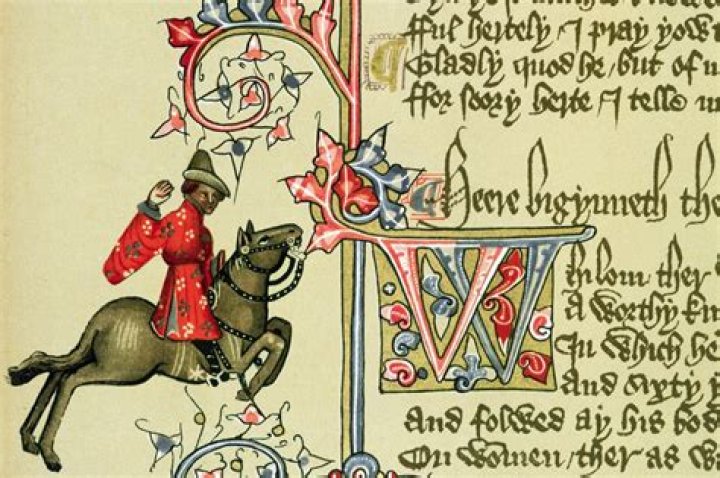 fful hertely / I pray yow
Gladly quod he / but of
ffor soory herte / I telle
Heere bigynneth the
Whilom ther
A worthy kn
In which he
And sixty y
And folwed ay his bod
On wommen / ther as wa